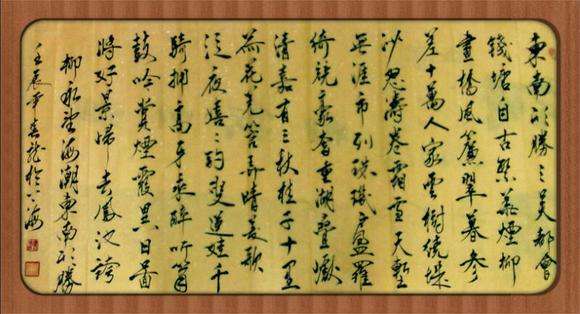 東南形勝三吴都會
錢塘自古繁華煙柳
畫橋風簾翠幕参
差十萬人家雲樹繞堤
沙怒濤卷霜雪天塹
無涯市列珠璣户盈羅
綺競豪奢重湖疊巘
清嘉有三秋桂子十里
荷花羌管弄晴菱歌
泛夜嬉嬉釣叟蓮娃千
騎擁高牙乘醉听簫
鼓吟賞煙霞異日圖
將好景歸去鳳池誇
柳永望海潮東南形勝
壬辰年春龍於上海